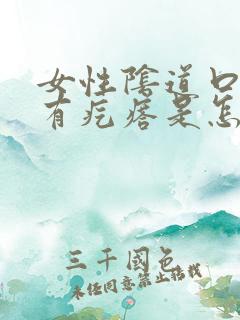 女性陰道口
有疙瘩是怎
三千國色
未经同意禁止搭载